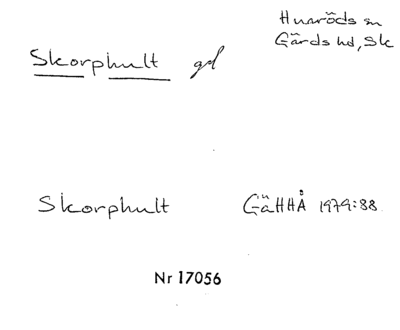 Huaröds sn
Gärds hd, Sk
Skorphult gd
Skorphult GäHHÅ 1979:88
Nr 17056